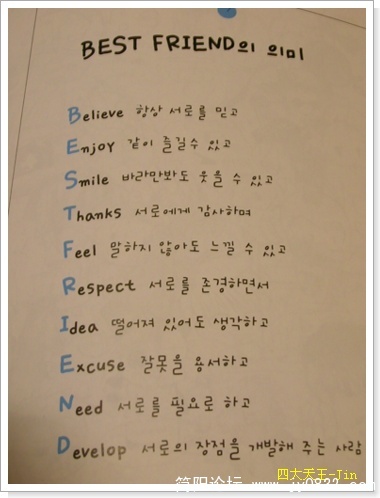 BEST FRIEND의 의미
Believe 항상 서로를 믿고
Enjoy 같이 즐길수 있고
Smile 바라만봐도 웃을 수 있고
Thanks 서로에게 감사하며
Feel 말하지 않아도 느낄 수 있고
Respect 서로를 존경하면서
Idea 떨어져 있어도 생각하고
Excuse 잘못을 용서하고
Need 서로를 필요로 하고
Develop 서로의 장점을 개발해 주는 사람
四大天王-Jin
简阳论坛